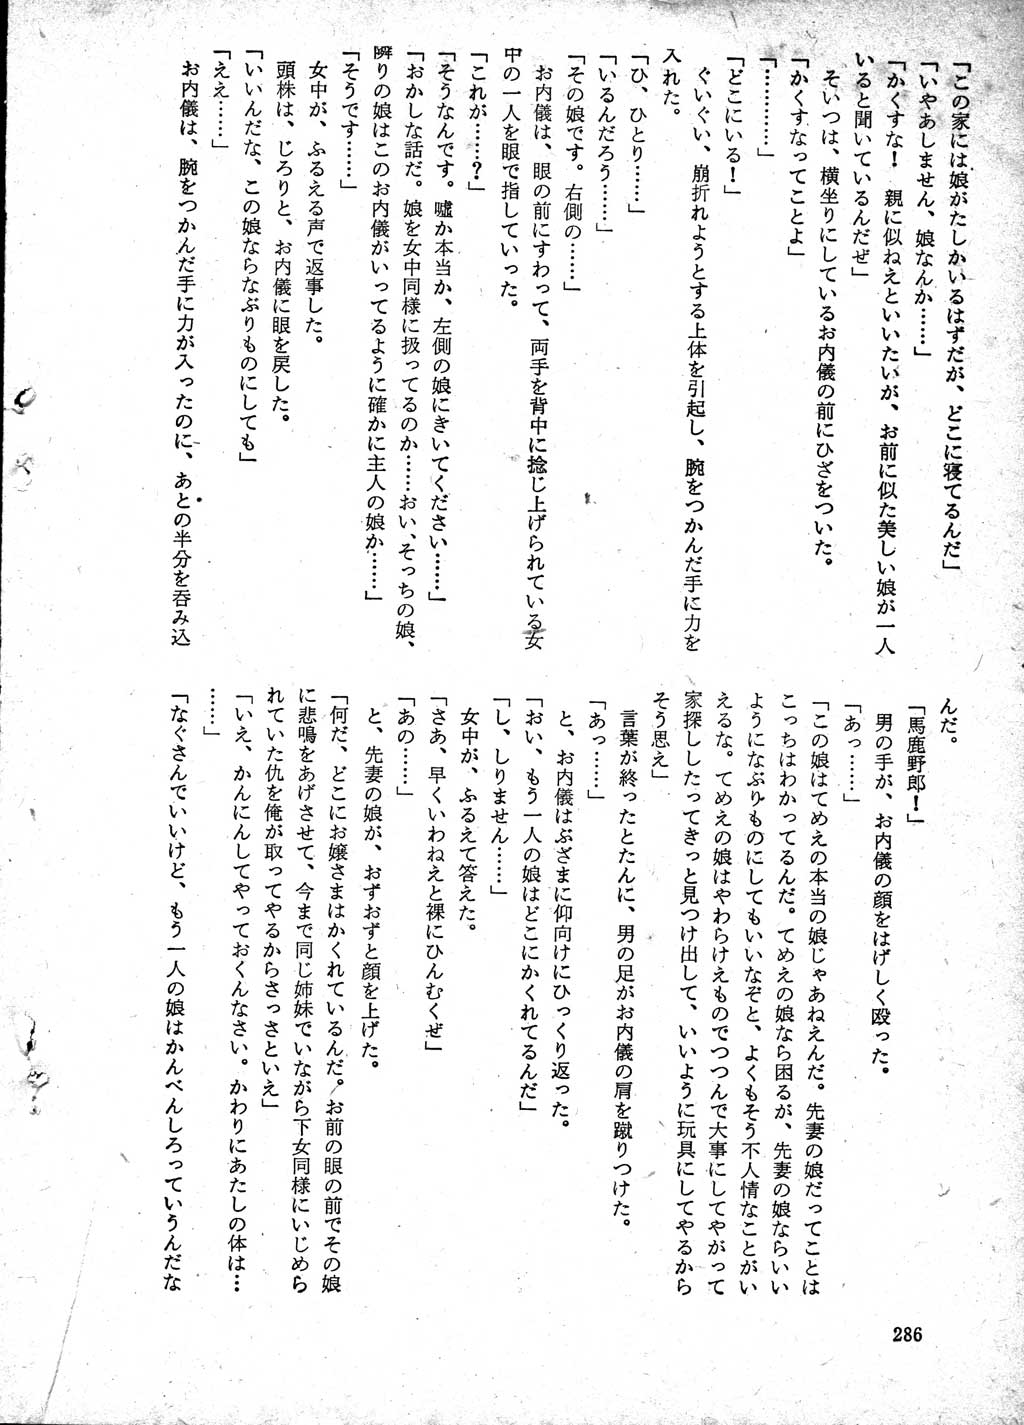 「この家には娘がたしかいるはずだが、どこに寝てるんだ」
「いやあしません、娘なんか……」
「かくすな！　親に似ねえといいたいが、お前に似た美しい娘が一人
いると聞いているんだぜ」
そいつは、横坐りにしているお内儀の前にひざをついた。
「かくすなってことよ」
「…………」
「どこにいる！」
ぐいぐい、崩折れようとする上体を引起し、腕をつかんだ手に力を
入れた。
「ひ、ひとり……」
「いるんだろう……」
「その娘です。右側の……」
お内儀は、眼の前にすわって、両手を背中に捻じ上げられている女
中の一人を眼で指していった。
「これが……？」
「そうなんです。嘘か本当か、左側の娘にきいてください……」
「おかしな話だ。娘を女中同様に扱ってるのか……おい、そっちの娘、
隣りの娘はこのお内儀がいってるように確かに主人の娘か……」
「そうです……」
女中が、ふるえる声で返事した。
頭株は、じろりと、お内儀に眼を戻した。
「いいんだな、この娘ならなぶりものにしても」
「ええ……」
お内儀は、腕をつかんだ手に力が入ったのに、あとの半分を呑み込
んだ。
「馬鹿野郎！」
男の手が、お内儀の顔をはげしく殴った。
「あっ……」
「この娘はてめえの本当の娘じゃあねえんだ。先妻の娘だってことは
こっちはわかってるんだ。てめえの娘なら困るが、先妻の娘ならいい
ようになぶりものにしてもいいなぞと、よくもそう不人情なことがい
えるな。てめえの娘はやわらけえものでつつんで大事にしてやがって
家探ししたってきっと見つけ出して、いいように玩具にしてやるから
そう思え」
言葉が終ったとたんに、男の足がお内儀の肩を蹴りつけた。
「あっ……」
と、お内儀はぶざまに仰向けにひっくり返った。
「おい、もう一人の娘はどこにかくれてるんだ」
「し、しりません……」
女中が、ふるえて答えた。
「さあ、早くいわねえと裸にひんむくぜ」
「あの……」
と、先妻の娘が、おずおずと顔を上げた。
「何だ、どこにお嬢さまはかくれているんだ。お前の眼の前でその娘
に悲鳴をあげさせて、今まで同じ姉妹でいながら下女同様にいじめら
れていた仇を俺が取ってやるからさっさといえ」
「いえ、かんにんしてやっておくんなさい。かわりにあたしの体は…
……」
「なぐさんでいいけど、もう一人の娘はかんべんしろっていうんだな
286